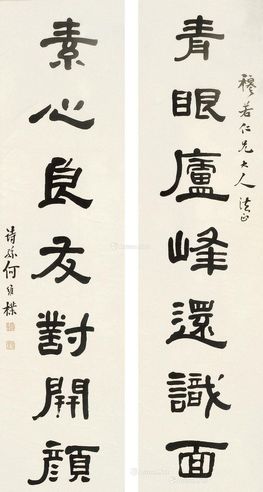 穆若仁兄大人法正
青眼廬峰還識面
素心良友對開顏
詩孫何維樸